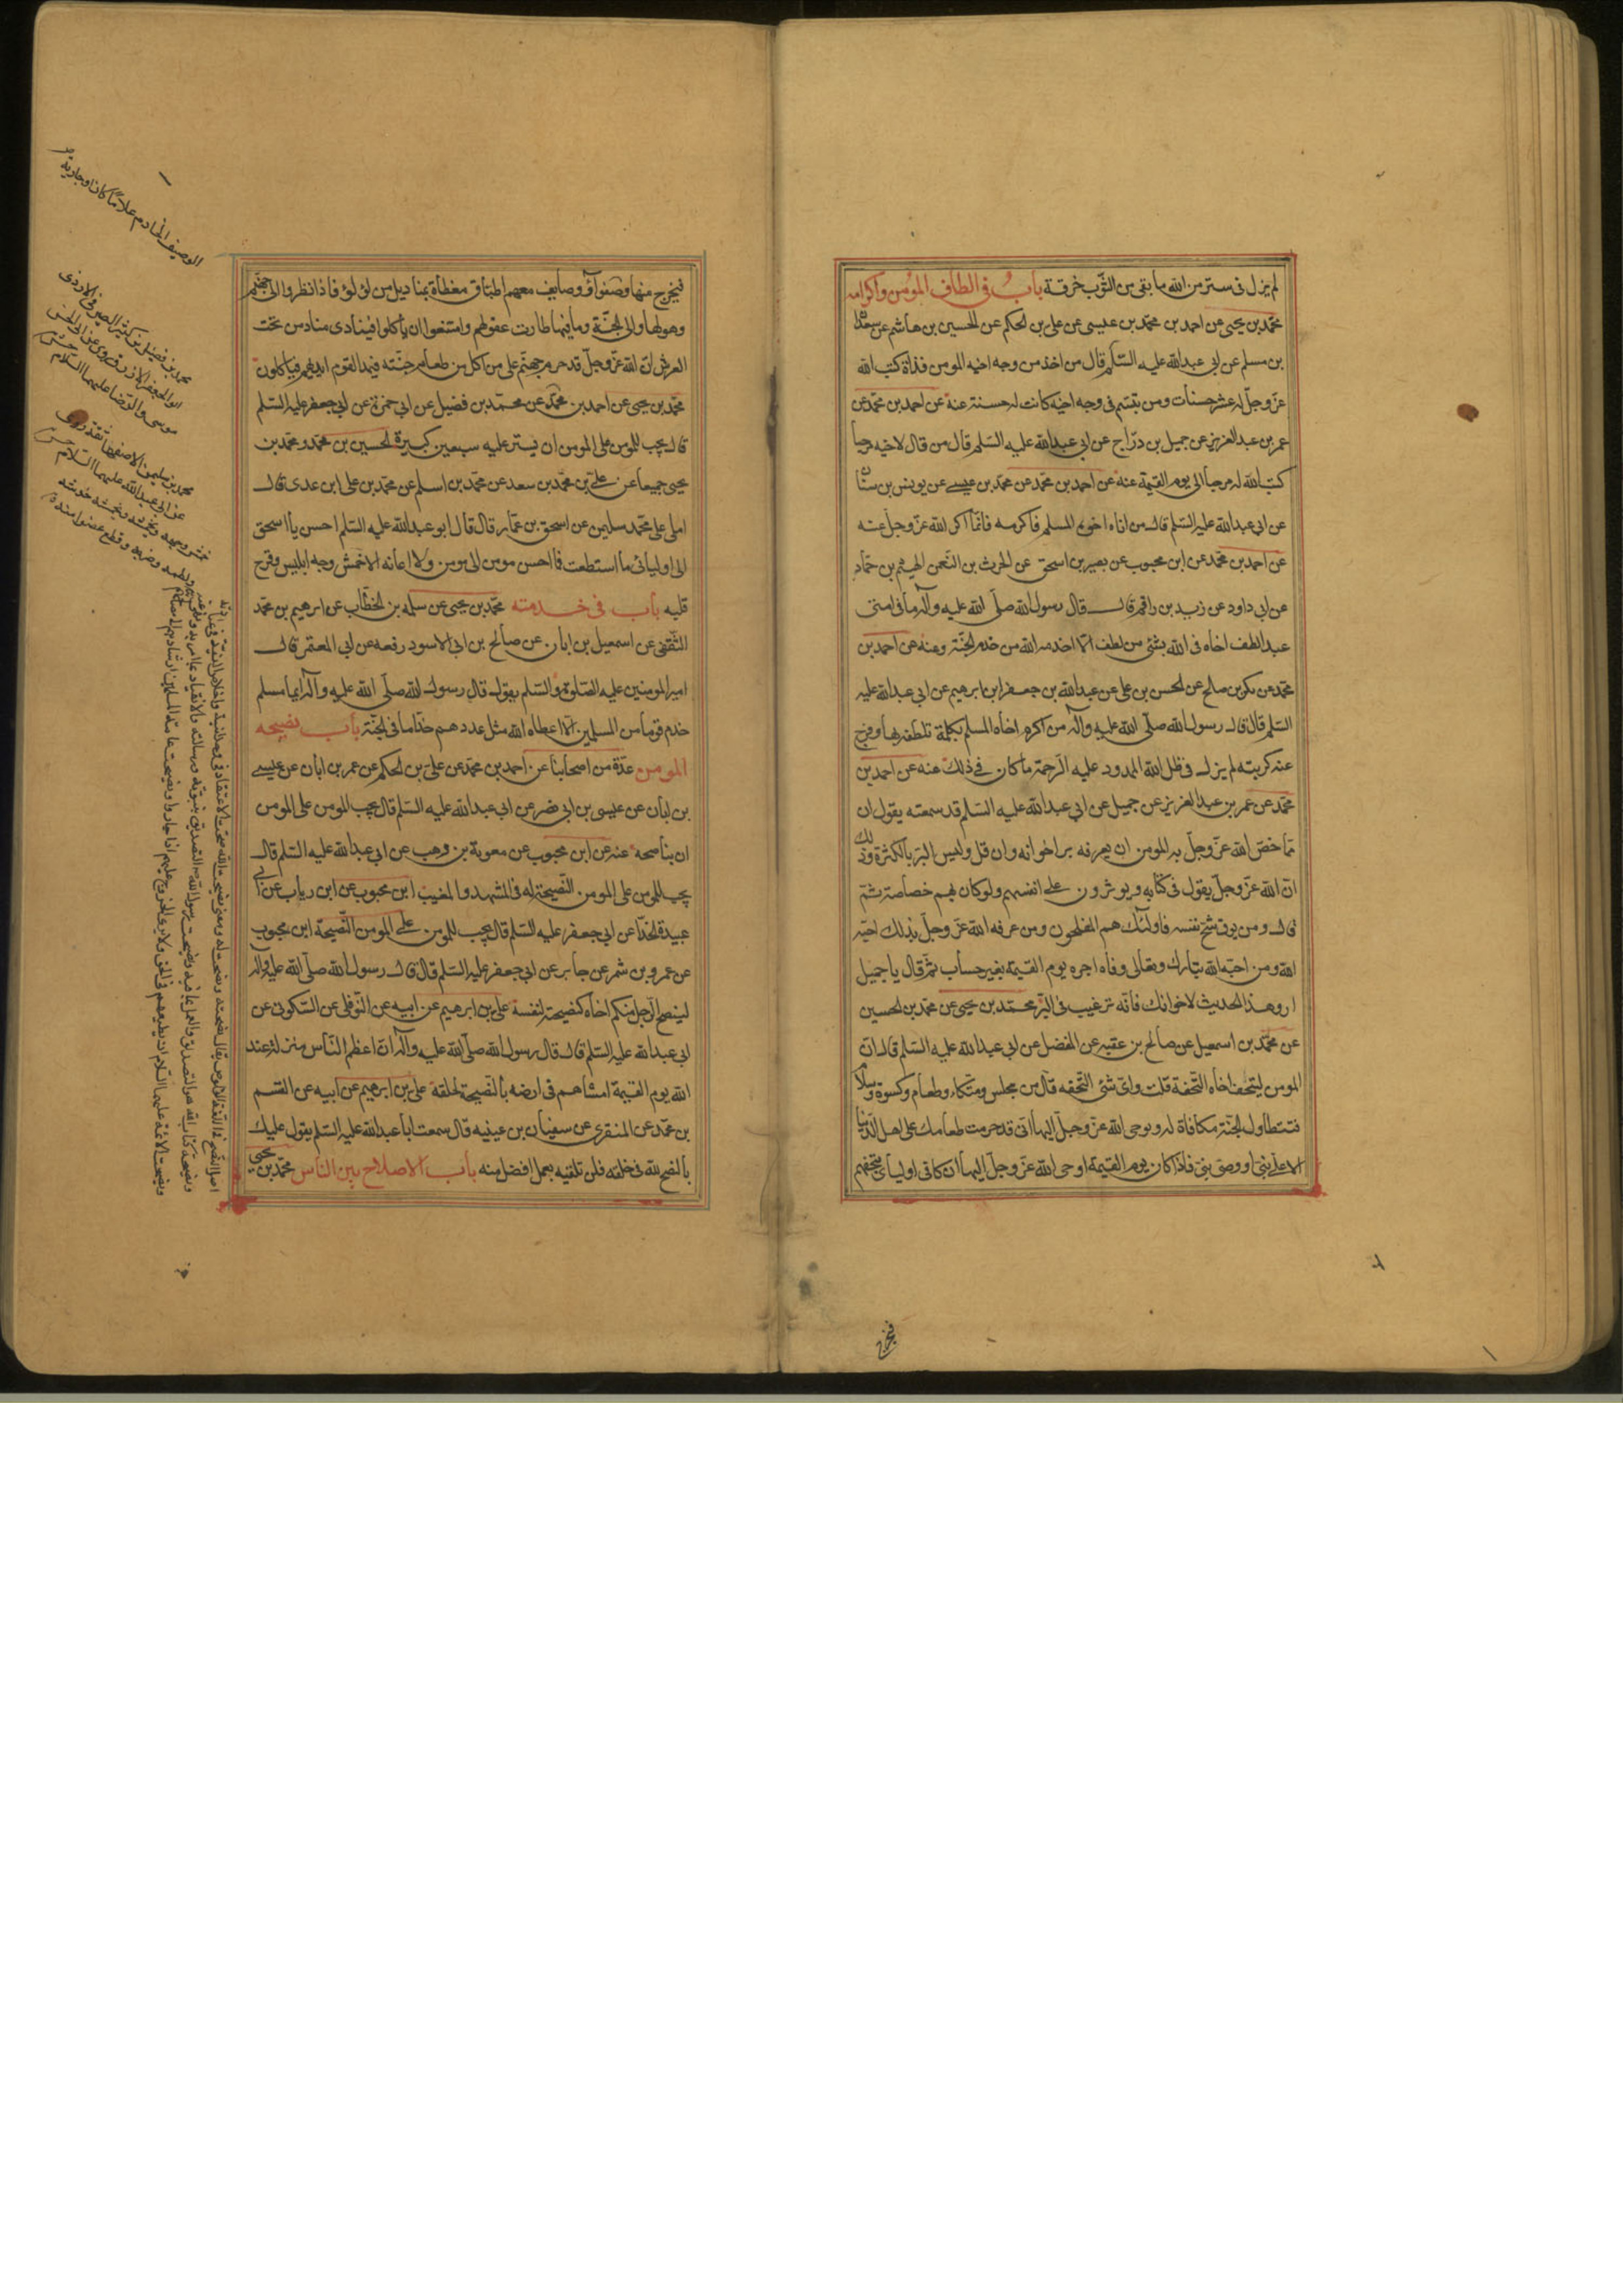 لم يزل فى ستر من الله ما بقى من الثوب خرقة باب فى الطاف المؤمن واكرامه
محمد بن يحيى عن احمد بن محمد بن عيسى عن على بن الحكم عن الحسين بن هاشم عن سعدان
بن مسلم عن ابى عبدالله عليه السلم قال من اخذ من وجه اخيه المومن قذاة كتب الله
عز وجل له عشر حسنات ومن تبسم فى وجه اخيه كانت له حسنة عنه عن احمد بن محمد عن
عمر بن عبد العزيز عن جميل بن دراج عن ابى عبدالله عليه السلم قال من قال لاخيه مرحبا
كتب الله له مرحبا الى يوم القيمة عنه عن احمد بن محمد عن محمد بن عيسى عن يونس بن سنان
عن ابى عبدالله عليه السلم قال من اتاه اخوه المسلم فاكرمه فانما اكرم الله عز وجل عنه
عن احمد بن محمد عن ابن محبوب عن بصير بن اسحق عن الحرث بن النعمن الهيثم بن حماد
عن ابى داود عن زيد بن راقم قال قال رسول الله صلى الله عليه وآله ما فى امتى
عبد الطف اخاه فى الله بشئ من لطف الا اخدمه الله من خدم الجنة وعنه عن احمد بن
محمد عن بكر بن صالح عن الحسن بن على عن عبدالله بن جعفر ابن ابرهيم عن ابى عبدالله عليه
السلم قال قال رسول الله صلى الله عليه وآله من اكرم اخاه المسلم بكلمة تلطفه بها وفرج
عنه كربته لم يزل فى ظل الله الممدود عليه الرحمة ما كان فى ذلك عنه عن احمد بن
محمد عن عمر بن عبد العزيز عن جميل عن ابى عبدالله عليه السلم قد سمعته يقول ان
مما خص الله عز وجل به المومن ان يعرفه بر اخوانه وان قل وليس البر بالكثرة وذلك
ان الله عز وجل يقول فى كتابه ويوثرون على انفسهم ولو كان بهم خصاصة ثم
قال ومن يوق شح نفسه فاولئك هم المفلحون ومن عرفه الله عز وجل بذلك احبه
الله ومن احبه الله تبارك وتعالى وفاه اجره يوم القيمة بغير حساب ثم قال يا جميل
ارو هذا الحديث لاخوانك فانه ترغيب فى البر محمد بن يحيى عن محمد بن الحسين
عن محمد بن اسمعيل عن صالح بن عقبه عن المفضل عن ابى عبدالله عليه السلم قال ان
المومن ليتحف اخاه التحفة قلت واى شئ التحفه قال من مجلس ومتكاء وطعام وكسوة وسلام
فتتطاول الجنة مكافاة له ويوحى الله عز وجل اليها انى قد حرمت طعامك على اهل الدنيا
الا على نبى او وصى نبى فاذا كان يوم القيمة اوحى الله عز وجل اليها ان كافى اوليائى بتحفهم
فيخرج
فيخرج منها وصفوآؤ وصايف معهم اطباق مغطاة بمناديل من لؤلؤ فاذا نظروا الى جهنم
وهولها والى الجنة وما فيها طارت عقولهم وامتنعوا ان ياكلوا فينادى مناد من تحت
العرش ان الله عز وجل قد حرم جهنم على من اكل من طعام جنته فيمد القوم ايديهم فياكلون
محمد بن يحيى عن احمد بن محمد عن محمد بن فضيل عن ابى حمزة عن ابى جعفر عليه السلم
قال يجب للمومن على المومن ان يستر عليه سبعين كبيرة الحسين بن محمد ومحمد بن
يحيى جميعا عن على بن محمد بن سعد عن محمد بن اسلم عن محمد بن على ابن عدى قال
املى على محمد سليمن عن اسحق بن عمار قال قال ابو عبدالله عليه السلم احسن يا اسحق
الى اوليائى ما استطعت فما احسن مومن الى مومن ولا اعانه الا خمش وجه ابليس وقرح
قلبه باب فى خدمته محمد بن يحيى عن سلمه بن الخطاب عن ابرهيم بن محمد
الثقفى عن اسمعيل بن ابان عن صالح بن ابى الاسود رفعه عن ابى المعتمر قال
امير المومنين عليه الصلوة والسلم يقول قال رسول الله صلى الله عليه وآله ايما مسلم
خدم قوما من المسلمين الا اعطاه الله مثل عددهم خداما فى الجنة باب نصيحه
المومن عدة من اصحابنا عن احمد بن محمد عن على بن الحكم عن عمر بن ابان عن عيسى
بن ابان عن عيسى بن ابى نضر عن ابى عبدالله عليه السلم قال يجب للمومن على المومن
ان يناصحه عنه عن ابن محبوب عن معوية بن وهب عن ابى عبدالله عليه السلم قال
يجب للمومن على المومن النصيحة له فى المشهد والمغيب ابن محبوب عن ابن رياب عن ابى
عبيدة الحذا عن ابى جعفر عليه السلم قال يجب للمومن على المومن النصيحة ابن محبوب
عن عمرو بن شمر عن جابر عن ابى جعفر عليه السلم قال قال رسول الله صلى الله عليه وآله
لينصح الرجل منكم اخاه كنصيحته لنفسه على بن ابرهيم عن ابيه عن النوفلى عن السكونى عن
ابى عبدالله عليه السلم قال قال رسول الله صلى الله عليه وآله ان اعظم الناس منزلة عند
الله يوم القيمة امشاهم فى ارضه بالنصيحة لخلقه على بن ابرهيم عن ابيه عن القسم
بن محمد عن المنقرى عن سفيان بن عيينه قال سمعت ابا عبدالله عليه السلم يقول عليك
بالنصح لله فى خلقه فلن تلقيه بعمل افضل منه باب الاصلاح بين الناس محمد بن يحيى
الوصيف الخادم غلاما كان او جارية
محمد بن فضيل بن كثير الصيرفى الازدى
ابو جعفر الازرق روى عن ابى الحسن
موسى والرضا عليهما السلام
محمد بن سليمن الاصفهانى ثقة روى
عن ابى عبدالله عليهما السلام
خمش وجهه يخمشه ويخمشه خدشه
ولطمه وضربه وقطع عضوا منه